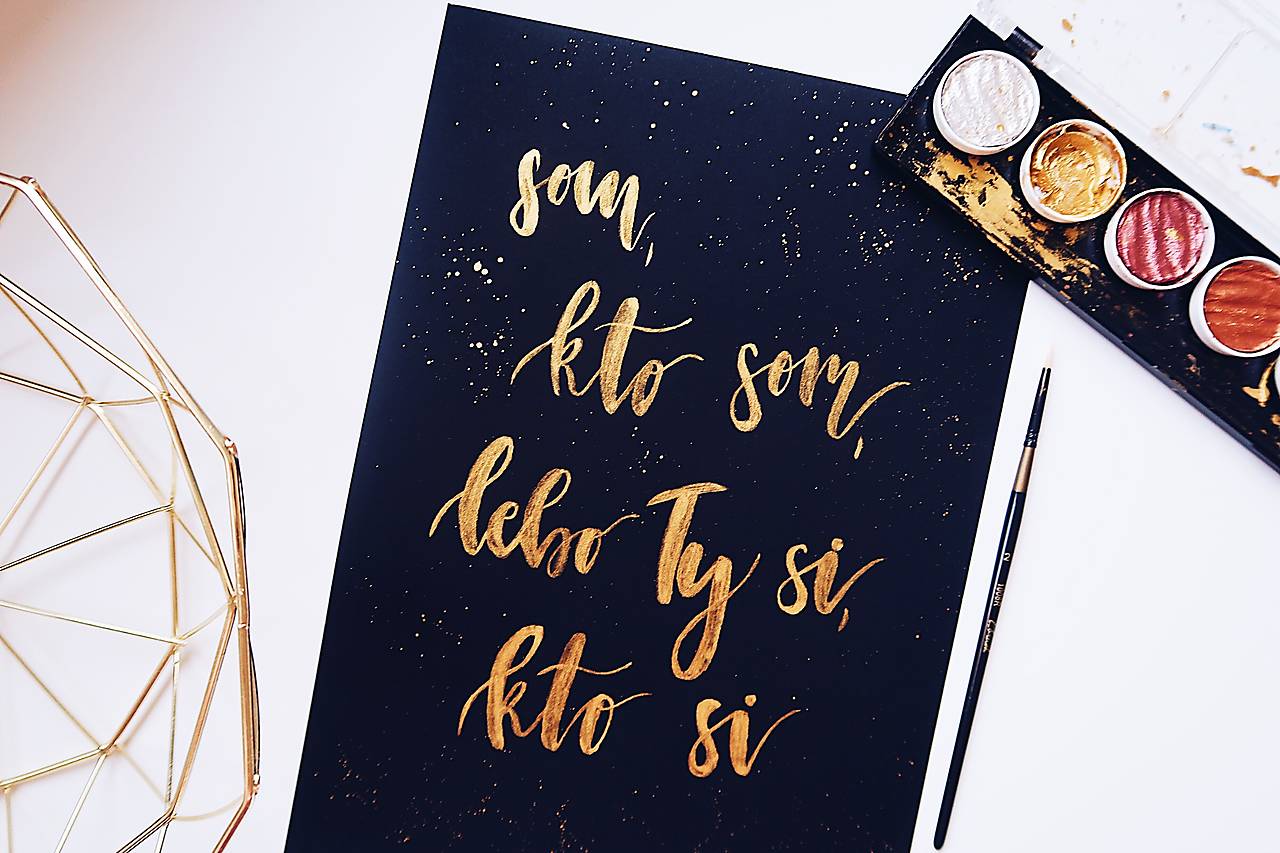 som,
kto som,
lebo Ty si,
kto si
2